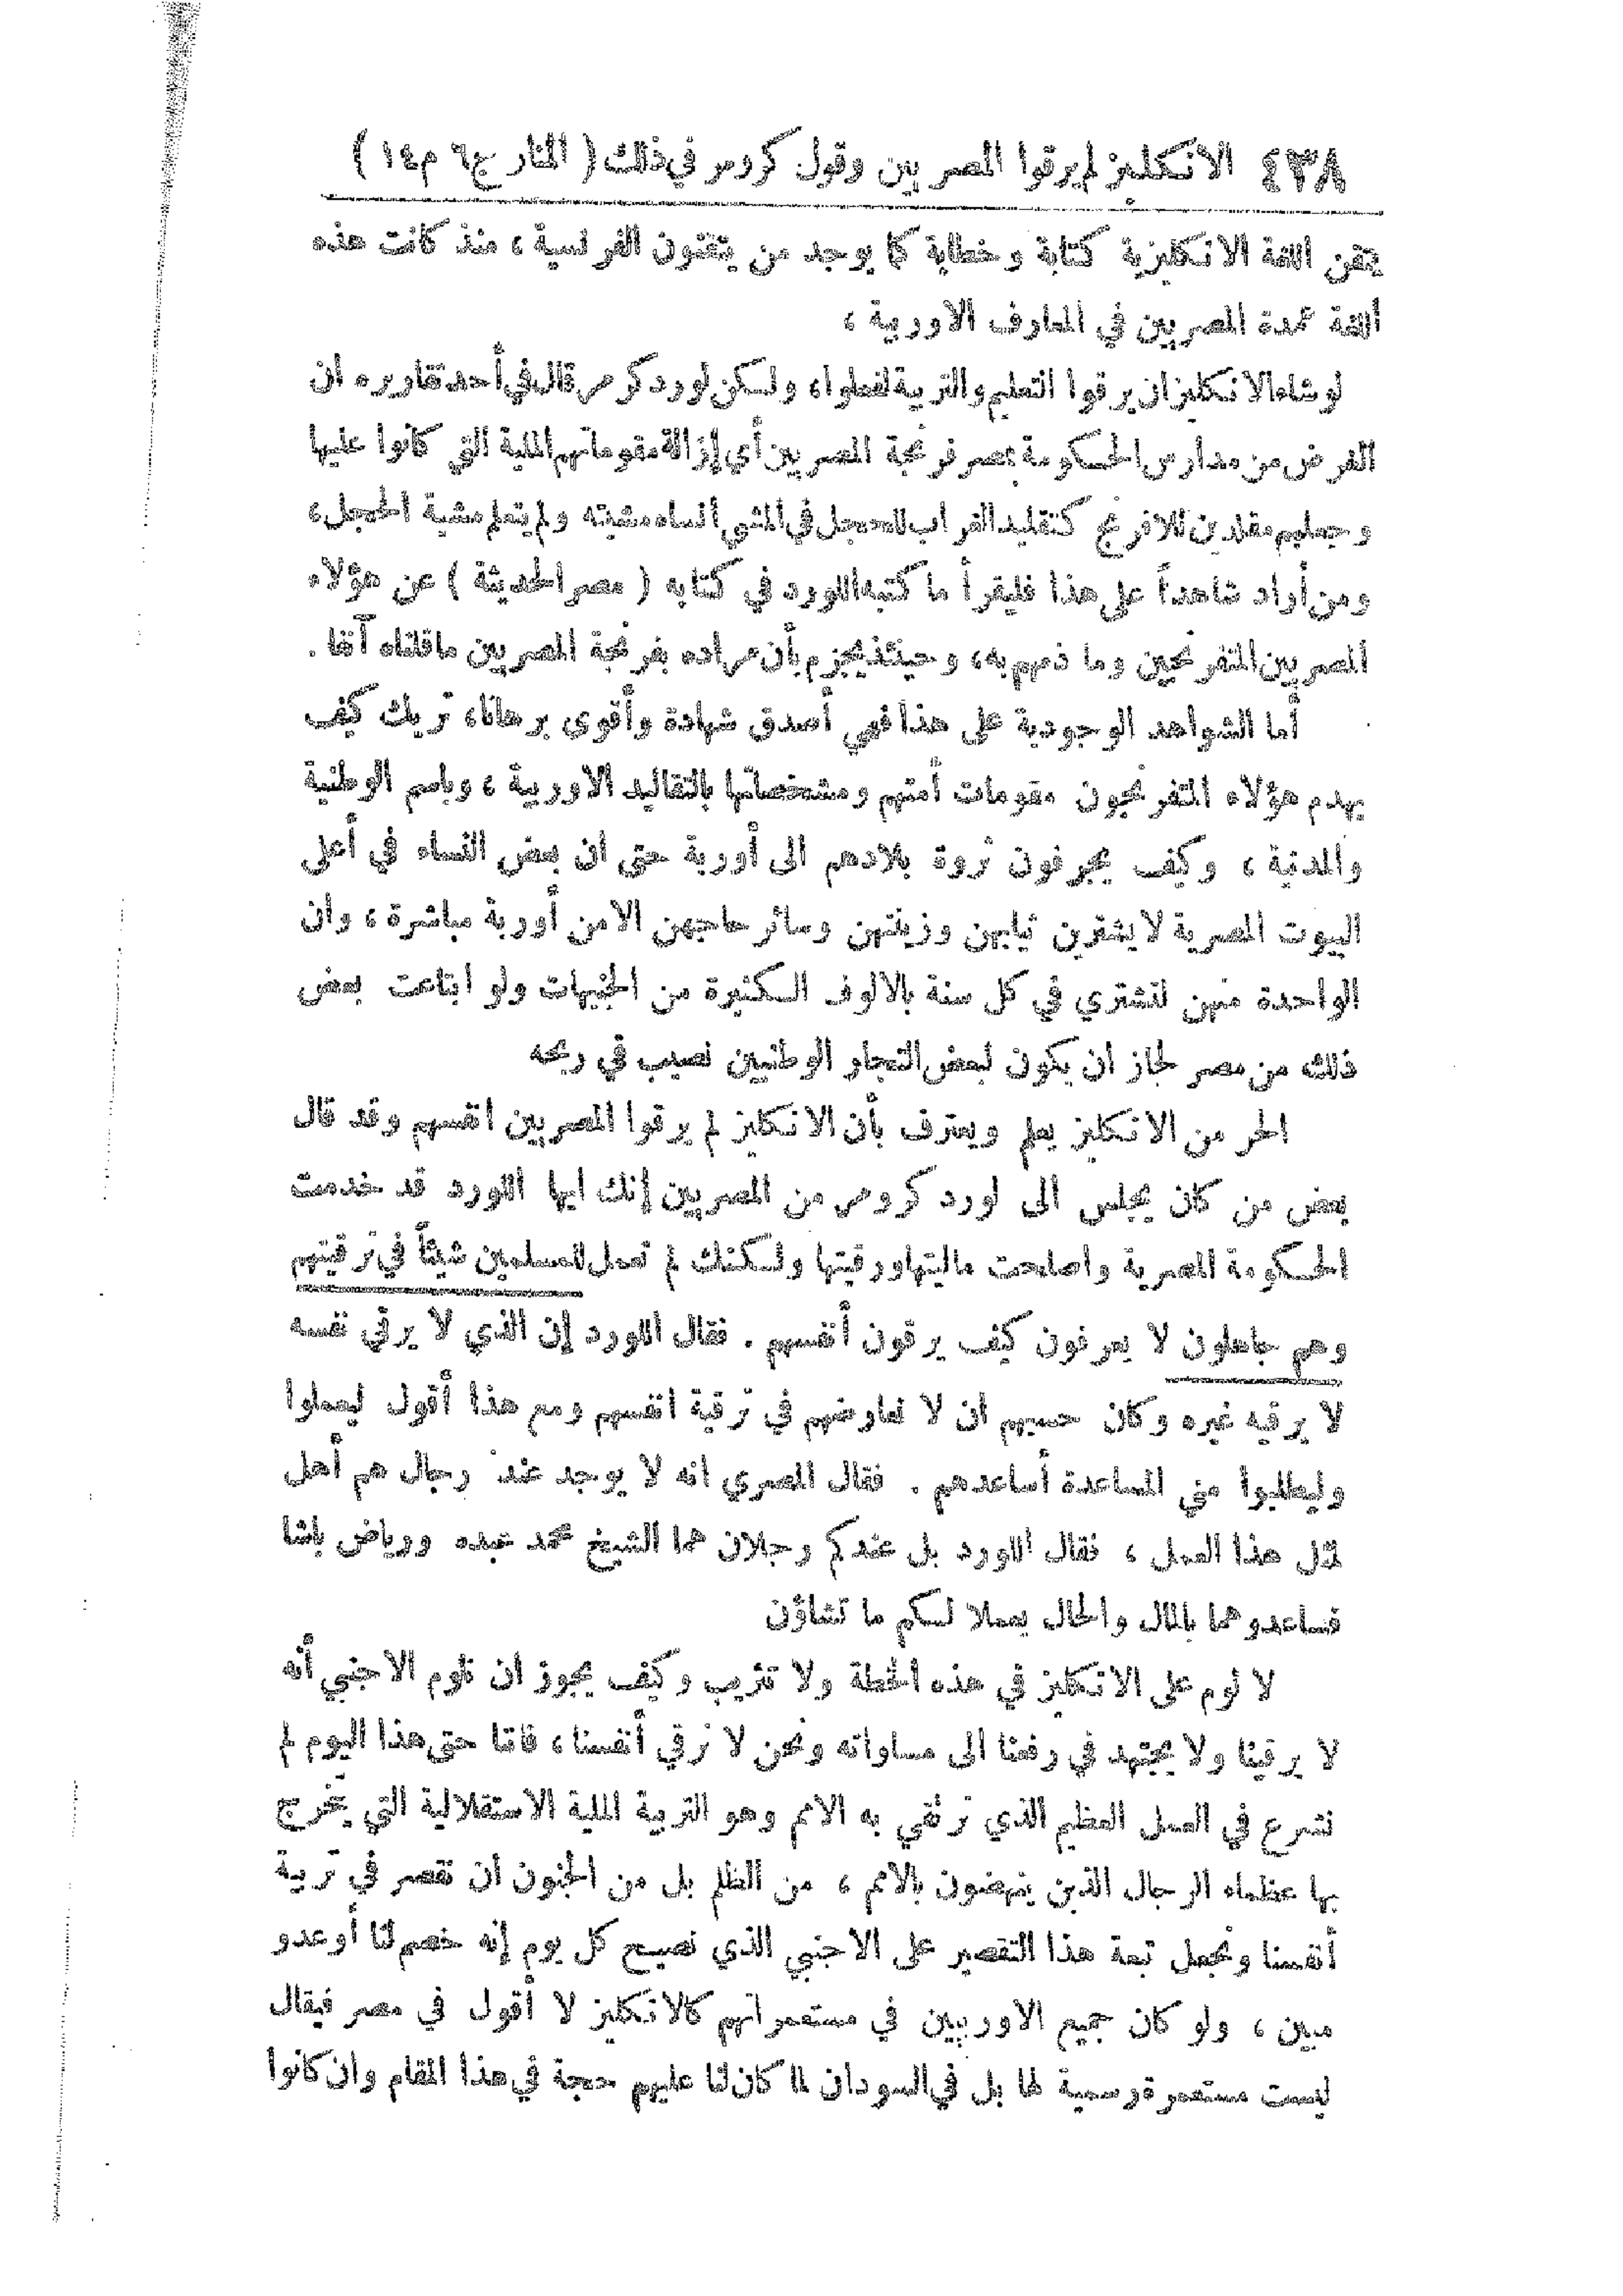 ٤٣٨ الانكليز لم يرقوا المصريين وقول كرومر في ذلك ( المنار ج٦ م١٤ )
يتقن اللغة الانكليزية كتابة وخطابة كما يوجد من يتقنون الفرنسية ، منذ كانت هذه
اللغة عمدة المصريين في المعارف الاوربية ،
لو شاء الانكليز ان يرقوا التعليم والتربية لفعلوا، ولكن لورد كرومر قال في أحد تقاريره ان
الغرض من مدارس الحكومة بمصر فرنجة المصريين أي إزالة مقوماتهم الملية التي كانوا عليها
وجعلهم مقلدين للافرنج كتقليد الغراب للحجل في المشي أنساه مشيته ولم يتعلم مشية الحجل،
ومن أراد شاهداً على هذا فليقرأ ما كتبه اللورد في كتابه ( مصر الحديثة ) عن هؤلاء
المصريين المتفرنجين وما ذمهم به، وحينئذ يجزم بأن مراده بفرنجة المصريين ما قلناه آنفا .
أما الشواهد الوجودية على هذا فهي أصدق شهادة وأقوى برهانا، تريك كيف
يهدم هؤلاء المتفرنجون مقومات أمتهم ومشخصاتها بالتقاليد الاوربية ، وباسم الوطنية
والمدنية ، وكيف يجرفون ثروة بلادهم الى أوربة حتى ان بعض النساء في أعلى
البيوت المصرية لا يشترين ثيابهن وزينتهن وسائر حاجهن الا من أوربة مباشرة ، وان
الواحدة منهن لتشتري في كل سنة بالالوف الكثيرة من الجنيهات ولو ابتاعت بعض
ذلك من مصر لجاز ان يكون لبعض التجار الوطنيين نصيب في ربحه
الحر من الانكليز يعلم ويعترف بأن الانكليز لم يرقوا المصريين انفسهم وقد قال
بعض من كان يجلس الى لورد كرومر من المصريين إنك ايها اللورد قد خدمت
الحكومة المصرية واصلحت ماليتها ورقيتها ولكنك لم تعمل للمسلمين شيئاً في ترقيتهم
وهم جاهلون لا يعرفون كيف يرقون أنفسهم . فقال اللورد إن الذي لا يرقي نفسه
لا يرقيه غيره وكان حسبهم ان لا نعارضهم في ترقية انفسهم ومع هذا أقول ليعملوا
وليطلبوا مني المساعدة أساعدهم . فقال المصري انه لا يوجد عند رجال هم أهل
لمثل هذا العمل ، فقال اللورد بل عندكم رجلان هما الشيخ محمد عبده ورياض باشا
فساعدوهما بالمال والحال يعملا لكم ما تشاؤن
لا لوم على الانكليز في هذه الخطة ولا تثريب وكيف يجوز ان نلوم الاجنبي أنه
لا يرقينا ولا يجتهد في رفعنا الى مساواته ونحن لا نرقي أنفسنا ، فاننا حتى هذا اليوم لم
نشرع في العمل العظيم الذي ترتقي به الامم وهو التربية الملية الاستقلالية التي يتخرج
بها عظماء الرجال الذين ينهضون بالامم ، من الظلم بل من الجنون أن نقصر في تربية
أنفسنا ونجعل تبعة هذا التقصير على الاجنبي الذي نصيح كل يوم إنه خصم لنا أو عدو
مبين ، ولو كان جميع الاوربيين في مستعمراتهم كالانكليز لا أقول في مصر فيقال
ليست مستعمرة رسمية لها بل في السودان لما كان لنا عليهم حجة في هذا المقام وان كانوا